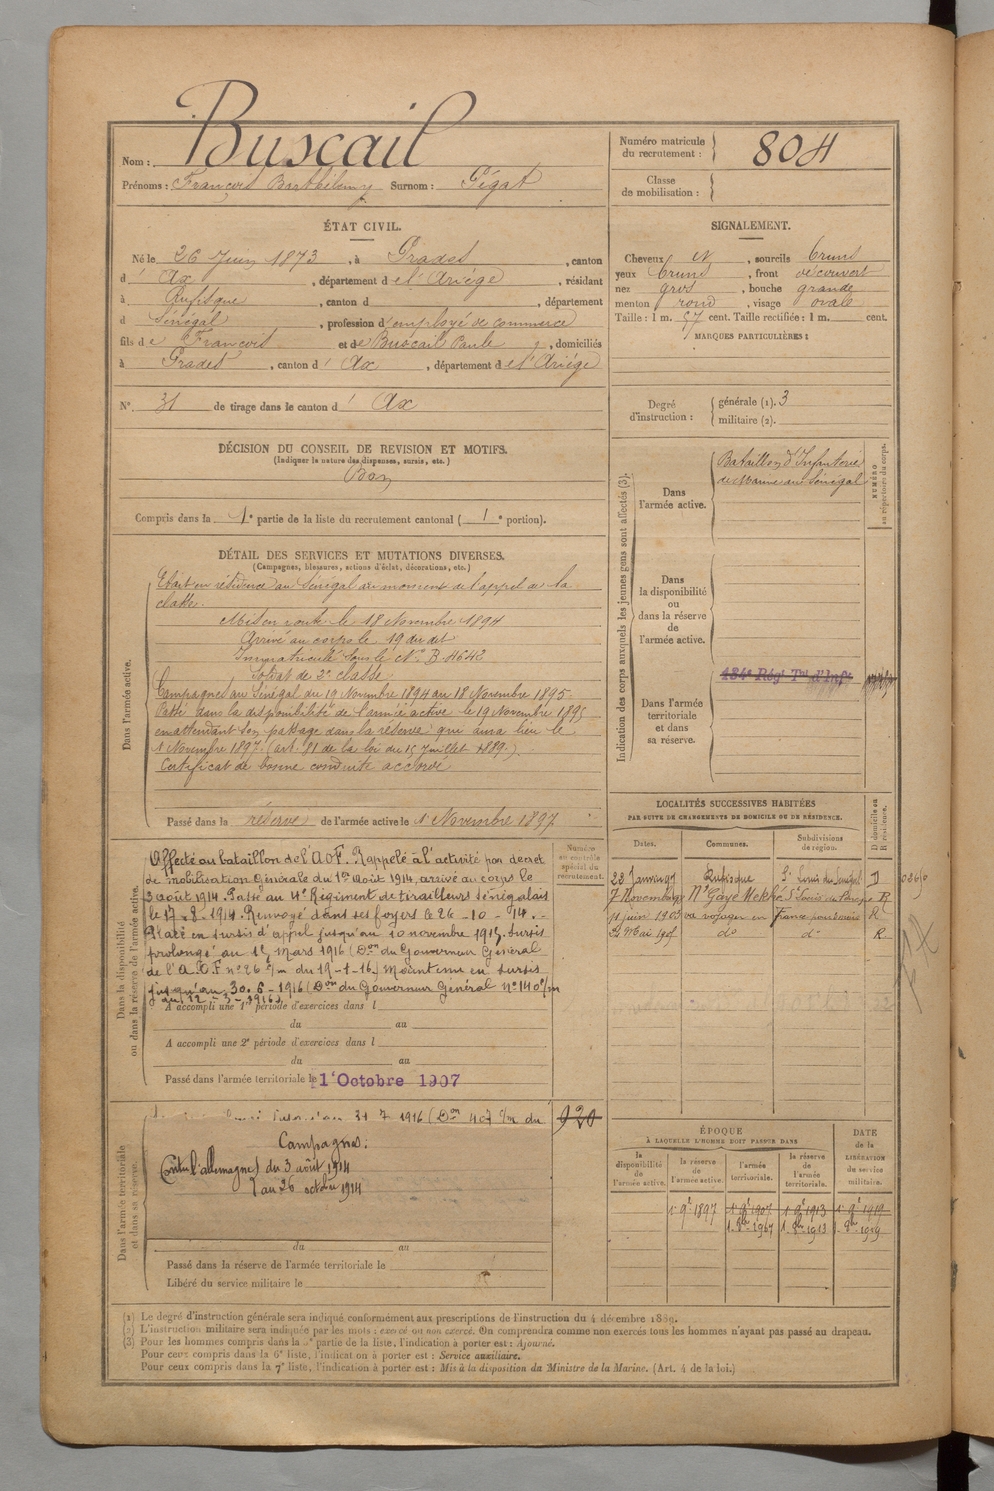 Nom : Buscail
Prénoms : François Barthélemy Surnom : Gégat
Numéro matricule du recrutement : 804
Classe de mobilisation :
ÉTAT CIVIL.
Né le 26 Juin 1873, à Prades, canton
d' Ax, département de l'Ariège, résidant
à Rufisque, canton d , département
d Sénégal, profession d'employé de commerce
fils de François et de Buscail Paule, domiciliés
à Prades, canton d' Ax, département de l'Ariège
N° 31 de tirage dans le canton d' Ax
SIGNALEMENT.
Cheveux et, sourcils bruns
yeux bruns, front découvert
nez gros, bouche grande
menton rond, visage ovale
Taille : 1 m. 57 cent. Taille rectifiée : 1 m. cent.
MARQUES PARTICULIÈRES :
Degré d'instruction : générale (1). 3
militaire (2).
DÉCISION DU CONSEIL DE REVISION ET MOTIFS.
(Indiquer la nature des dispenses, sursis, etc.)
Bon
Compris dans la 1e partie de la liste du recrutement cantonal ( 1e portion).
DÉTAIL DES SERVICES ET MUTATIONS DIVERSES.
(Campagnes, blessures, actions d'éclat, décorations, etc.)
Dans l'armée active.
Etait en résidence au Sénégal au moment de l'appel de la
classe.
Mis en route le 18 Novembre 1894
Arrivé au corps le 19 du dit
Immatriculé sous le N° B 4642
Soldat de 2e classe
Campagnes au Sénégal du 19 Novembre 1894 au 18 Novembre 1895
Passé dans la disponibilité de l'armée active le 19 Novembre 1895
en attendant son passage dans la réserve qui aura lieu le
1 Novembre 1897 (art. 81 de la loi du 15 Juillet 1889.)
Certificat de bonne conduite accordé
Passé dans la réserve de l'armée active le 1 Novembre 1897
Indication des corps auxquels les jeunes gens sont affectés (3).
Dans l'armée active.
Bataillon d'Infanterie
de Marine au Sénégal
NUMÉRO au répertoire du corps.
Dans la disponibilité ou dans la réserve de l'armée active.
Dans l'armée territoriale et dans sa réserve.
134e Régt Tal d'Infie
LOCALITÉS SUCCESSIVES HABITÉES
PAR SUITE DE CHANGEMENTS DE DOMICILE OU DE RÉSIDENCE.
Dates. Communes. Subdivisions de région. D domicile ou R résidence.
23 Janvier 97 Rufisque St Louis du Sénégal D
7 Novembre St Louis R
11 juin 1903 va voyager en France R
24 Mai 1905 do do R
Dans la disponibilité ou dans la réserve de l'armée active.
Numéro au contrôle spécial du recrutement.
Affecté au bataillon de l'A.O.F. Rappelé à l'activité par décret
de mobilisation générale du 1er août 1914, arrivé au corps le
3 août 1914. Passé au 4e Régiment de tirailleurs sénégalais
le 17-8-1914. Renvoyé dans ses foyers le 26-10-14.-
Placé en sursis d'appel jusqu'au 10 novembre 1915. Sursis
prolongé au 15 Mars 1916 (Don du Gouverneur Général
de l'A.O.F n° 26 c/m du 19-1-16) Maintenu en sursis
jusqu'au 30-6-1916 (Don du Gouverneur Général n° 140 c/m
du 12-3-1916)
A accompli une 1re période d'exercices dans l
du au
A accompli une 2e période d'exercices dans l
du au
Passé dans l'armée territoriale le 1er Octobre 1907
Dans l'armée territoriale et dans sa réserve.
31 7 1916 (Don 407 c/m du
920
Campagnes:
Contre l'allemagne) du 3 août 1914
au 26 octobre 1914
du au
Passé dans la réserve de l'armée territoriale le
Libéré du service militaire le
ÉPOQUE
À LAQUELLE L'HOMME DOIT PASSER DANS
la disponibilité de l'armée active. la réserve de l'armée active. l'armée territoriale. la réserve de l'armée territoriale. DATE de la LIBÉRATION du service militaire.
1 9e 1897 1 9e 1907 1 9e 1913 1 9e 1919
1. 8bre 1907 1. 8bre 1913 1. 8bre 1919
(1) Le degré d'instruction générale sera indiqué conformément aux prescriptions de l'instruction du 4 décembre 1889.
(2) L'instruction militaire sera indiquée par les mots : exercé ou non exercé. On comprendra comme non exercés tous les hommes n'ayant pas passé au drapeau.
(3) Pour les hommes compris dans la 2e partie de la liste, l'indication à porter est : Ajourné.
Pour ceux compris dans la 6e liste, l'indication à porter est : Service auxiliaire.
Pour ceux compris dans la 7e liste, l'indication à porter est : Mis à la disposition du Ministre de la Marine. (Art. 4 de la loi.)